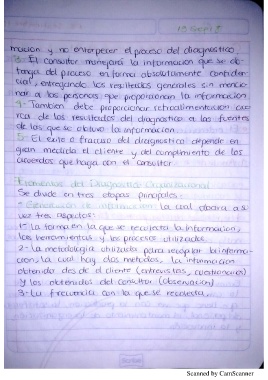 mación y no entorpecer el proceso del diagnostico.
3- El consultor manejará la información que se ob-
tenga del proceso en forma absolutamente confiden-
cial, entregando los resultados generales sin mencio-
nar a las personas que proporcionan la información
4- También debe proporcionar retroalimentación acer-
ca de los resultados del diagnostico a las fuentes
de las que se obtuvo la información.
5- El exito o fracaso del diagnostico depende en
gran medida el cliente y del cumplimiento de los
acuerdos que haga con el consultor.
Elementos del Diagnostico Organizacional
Se divide en tres etapas principales:
- Generación de información la cual abarca a su
vez tres aspectos:
1- La forma en la que se recolecta la información,
las herramientas y los procesos utilizados.
2- La metodología utilizada para recopilar la informa-
ción, la cual hay dos metodos, la información
obtenida desde el cliente (entrevistas, cuestionarios)
y los obtenidos del consultor (observación)
3- La frecuencia con la que se recolecta.
Scanned by CamScanner